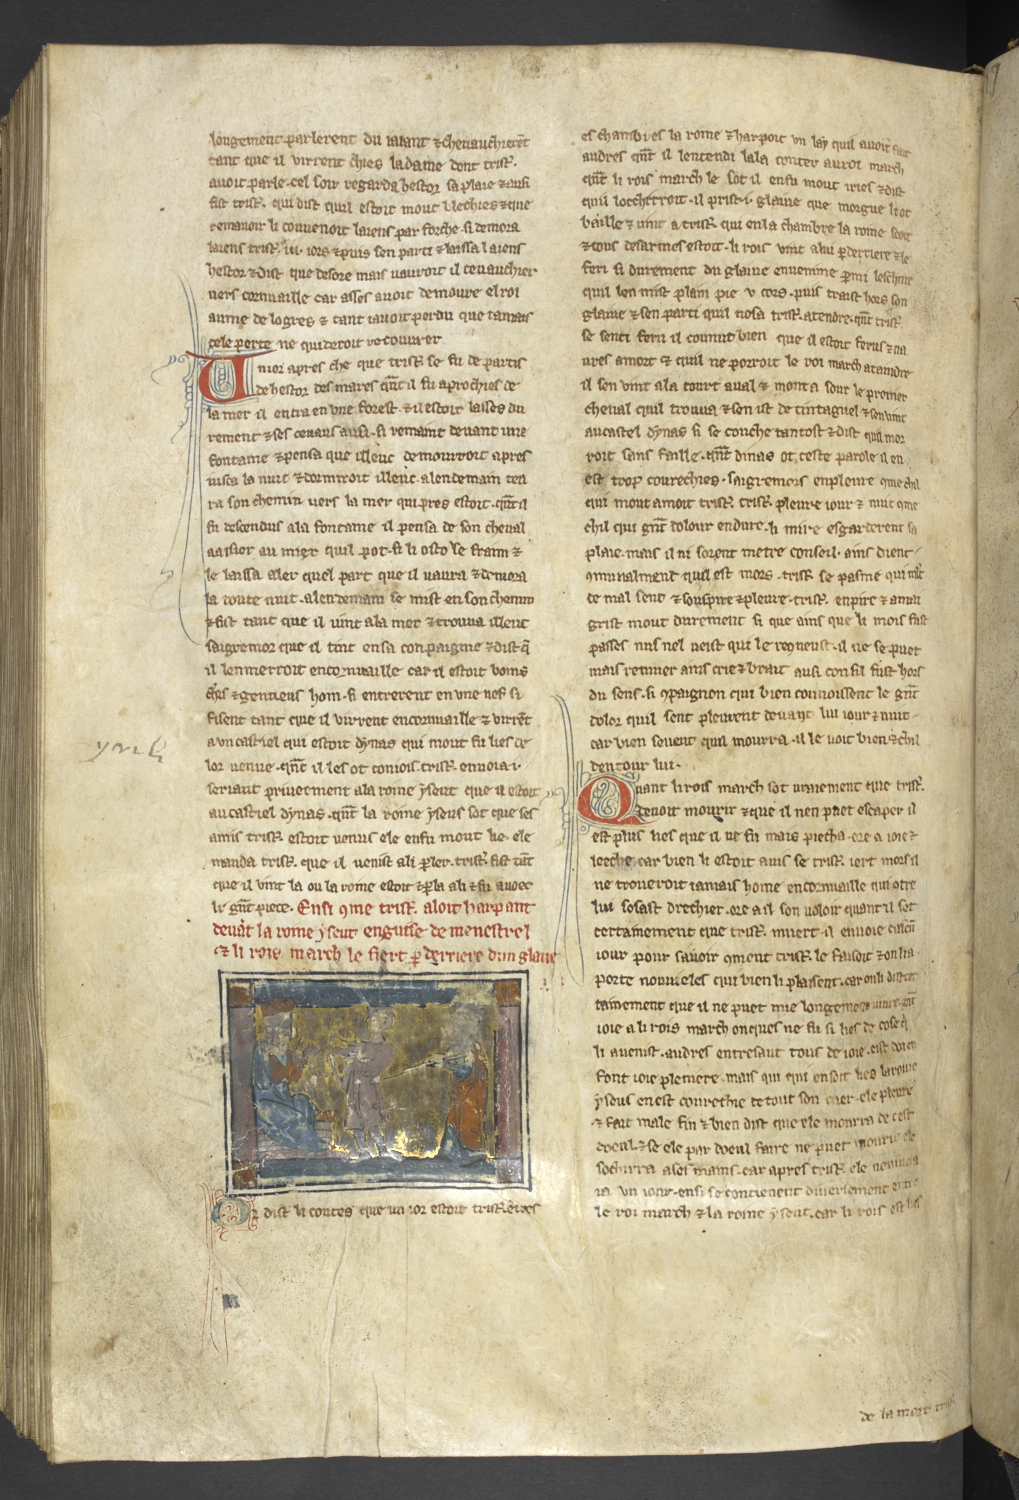 longement parlerent du iaiant ⁊ cheuauchierēt
tant que il virrent chies la dame dont trist̄.
auoit parle. cel soir regarda hestor sa plaie ⁊ ausi
fist trist̄. qui dist quil estoit mout blechies ⁊ que
remanoir li couenoit laiens par forche. si demora
laiens trist̄. .iii. iors ⁊ puis sen parti ⁊ laissa laiens
hestor ⁊ dist que desore mais vauroit il ceuauchier
uers cornuaille car asses auoit demoure el roi
aume de logres ⁊ tant iauoit perdu que iamais
cele perte ne quideroit recouurer
Vn ior apres che que trist̄ se fu departis
de hestor des mares qn̄t il fu aprochies de
la mer il entra en vne forest. ⁊ il estoit lasses du
rement ⁊ ses ceuaus ausi. si remaint deuant une
fontaine ⁊ pensa que illeuc demourroit apres
iusca la nuit ⁊ dormiroit illeuc. alendemain ten
ra son chemin uers la mer qui pres estoit. qn̄t il
fu descendus a la fontaine il pensa de son cheual
aaisier au miex quil pot. si li osto le frain ⁊
le laissa aler quel part que il vaura ⁊ demora
la toute nuit. alendemain se mist en son chemin
⁊ fist tant que il vint a la mer ⁊ trouua illeuc
saigremor que il tint en sa conpaignie ⁊ dist q̄
il lenmerroit en cornuaille car il estoit boins
ch̄rs ⁊ gentieus hom. si entrerent en vne nef si
fisent tant que il virrent en cornuaille ⁊ virrēt
a vn castiel qui estoit dynas qui mout fu lies de
lor venue. qn̄t il les ot conois. trist̄. enuoia .i.
seriant priueement a la roine yseut que il estoit
au castiel dynas. qn̄t la roine yseus sot que ses
amis trist̄. estoit venus ele en fu mout lie. ele
manda trist̄. que il venist a li p̄ler. trist̄. fist tāt
que il vint la ou la roine estoit ⁊ p̄la a li ⁊ fu auoec
li gn̄t piece. Ensi 9me trist̄. aloit harpant
deuāt la roine yseut en guise de menestrel
⁊ li rois march le fiert p̄ derriere dun glaiue
Or dist li contes que vn ior estoit tristrās es
es chambres la roine ⁊ harpoit vn lay quil auoit fait
audres qn̄t il lentendi lala conter au roi march
qn̄t li rois march le sot il en fu mout iries ⁊ dist
quil lochirroit. il prist .i. glaiue que morgue li ot
baillie ⁊ vint a trist̄. qui en la chambre la roine seoit
⁊ tous desarmes estoit. li rois vint a lui p̄ derriere ⁊ le
feri si durement du glaiue enuenime p̄mi leschine
quil len mist plain pie v cors. puis traist hors son
glaiue ⁊ sen parti quil nosa trist̄. atendre. qn̄t trist̄.
se senti feru il counut bien que il estoit ferus ⁊ na
ures a mort ⁊ quil ne porroit le roi march ataindre
il sen vint a la court aual ⁊ monta sour le premier
cheual quil trouua ⁊ sen ist de tintaguel ⁊ sen vint
au castel dynas si se couche tantost ⁊ dist quil mor
roit sans faille. qn̄t dinas ot ceste parole il en
est trop courechies. saigremors en pleure 9me chil
qui mout amoit trist̄. trist̄. pleure iour ⁊ nuit 9me
chil qui gn̄t dolour endure. li mire esgarderent sa
plaie mais il ni sorent metre conseil. ains dient
9munalment quil est mors. trist̄ se pasme qui mlt̄
de mal sent ⁊ souspire ⁊ pleure. trist̄. enpire ⁊ amai
grist mout durement si que ains que li mois fust
passes nus nel veist qui le reconeust. il ne se puet
mais remuer ains crie ⁊ brait ausi con sil fust hors
du sens. si 9paignon qui bien connoissent le gn̄t
dolor quil sent pleurent deuant lui iour ⁊ nuit
car bien seuent quil mourra. il le voit bien ⁊ chil
dentour lui.
Quant li rois march sot uraiement que trist̄.
deuoit mourir ⁊ que il nen puet escaper il
est plus lies que il ne fu mais piecha. ore a ioie ⁊
leeche. car bien li estoit auis se trist̄. iert mors il
ne troueroit iamais home en cornuaille qui otre
lui sosast drechier. ore a il son voloir quant il set
certainement que trist̄. muert. il enuoie cascun
iour pour sauoir 9ment trist̄. le faisoit ⁊ on li a
porte nouueles qui bien li plaisent. car on li dist cer
tainement que il ne puet mie longement viure. gn̄t
ioie a li rois march onques ne fu si lies de cose q̄
li auenist. audres entresaut tous de ioie. cist doi en
font ioie pleniere. mais qui qui en soit lies la roine
yseus en est courechie de tout son cuer. ele pleure
⁊ fait male fin ⁊ bien dist que ele mourra de cest
doeul. ⁊ se ele par doeul faire ne puet mourir ele
sochirra a ses mains. car apres trist̄. ele ne viura
ia vn iour. ensi se contienent diuersement entre
le roi march ⁊ la roine yseut. car li rois est lies
de la mort